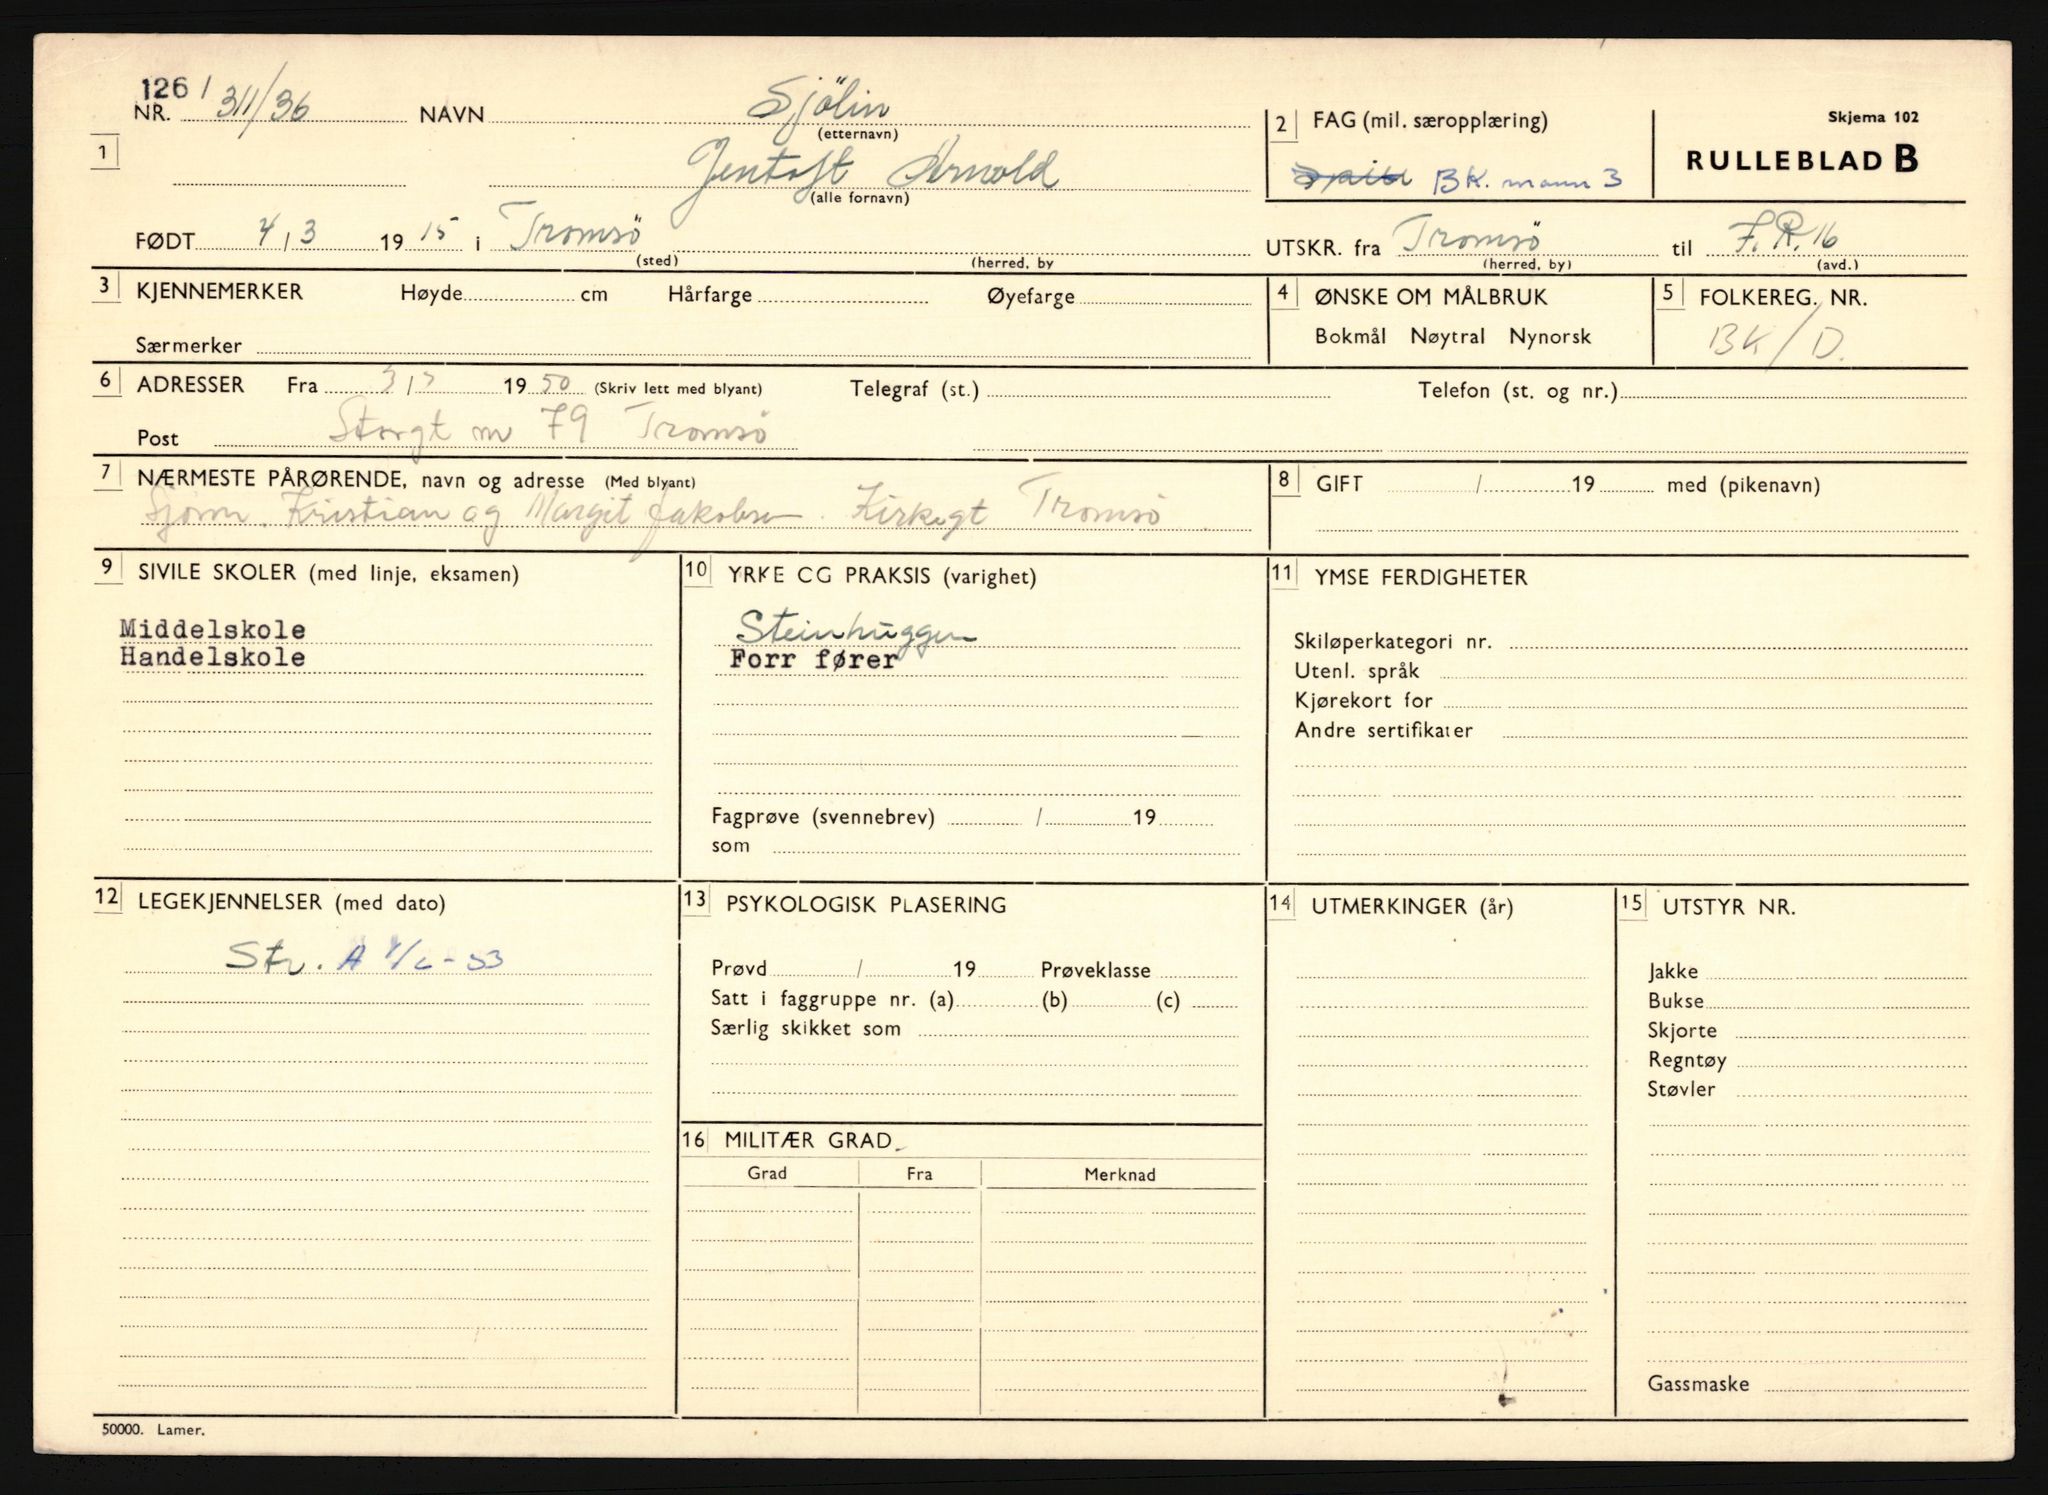 126 / 311/36
NR. NAVN Sjölin
(etternavn)
1
Jentoft Arnold
(alle fornavn)
2 FAG (mil. særopplæring)
BK. mann 3
Skjema 102
RULLEBLAD B
FØDT 4 / 3 19 15 i Tromsö
(sted) (herred, by
UTSKR. fra Tromsö til F.R. 16
(herred, by) (avd.)
3 KJENNEMERKER Høyde cm Hårfarge Øyefarge
Særmerker
4 ØNSKE OM MÅLBRUK
Bokmål Nøytral Nynorsk
5 FOLKEREG. NR.
BK/D.
6 ADRESSER Fra 3 / 19 50 (Skriv lett med blyant) Telegraf (st.) Telefon (st. og nr.)
Post Storgt nr 79 Tromsö
7 NÆRMESTE PÅRØRENDE, navn og adresse (Med blyant)
Kristian og Margit Jakobsen. Kirkegt Tromsö
8 GIFT / 19 med (pikenavn)
9 SIVILE SKOLER (med linje, eksamen)
Middelskole
Handelskole
10 YRKE CG PRAKSIS (varighet)
Steinhugger
Forr fører
Fagprøve (svennebrev) / 19
som
11 YMSE FERDIGHETER
Skiløperkategori nr.
Utenl. språk
Kjørekort for
Andre sertifikater
12 LEGEKJENNELSER (med dato)
Str. A 1/6-53
13 PSYKOLOGISK PLASERING
Prøvd / 19 Prøveklasse
Satt i faggruppe nr. (a) (b) (c)
Særlig skikket som
14 UTMERKINGER (år)
15 UTSTYR NR.
Jakke
Bukse
Skjorte
Regntøy
Støvler
Gassmaske
16 MILITÆR GRAD
Grad Fra Merknad
50000. Lamer.